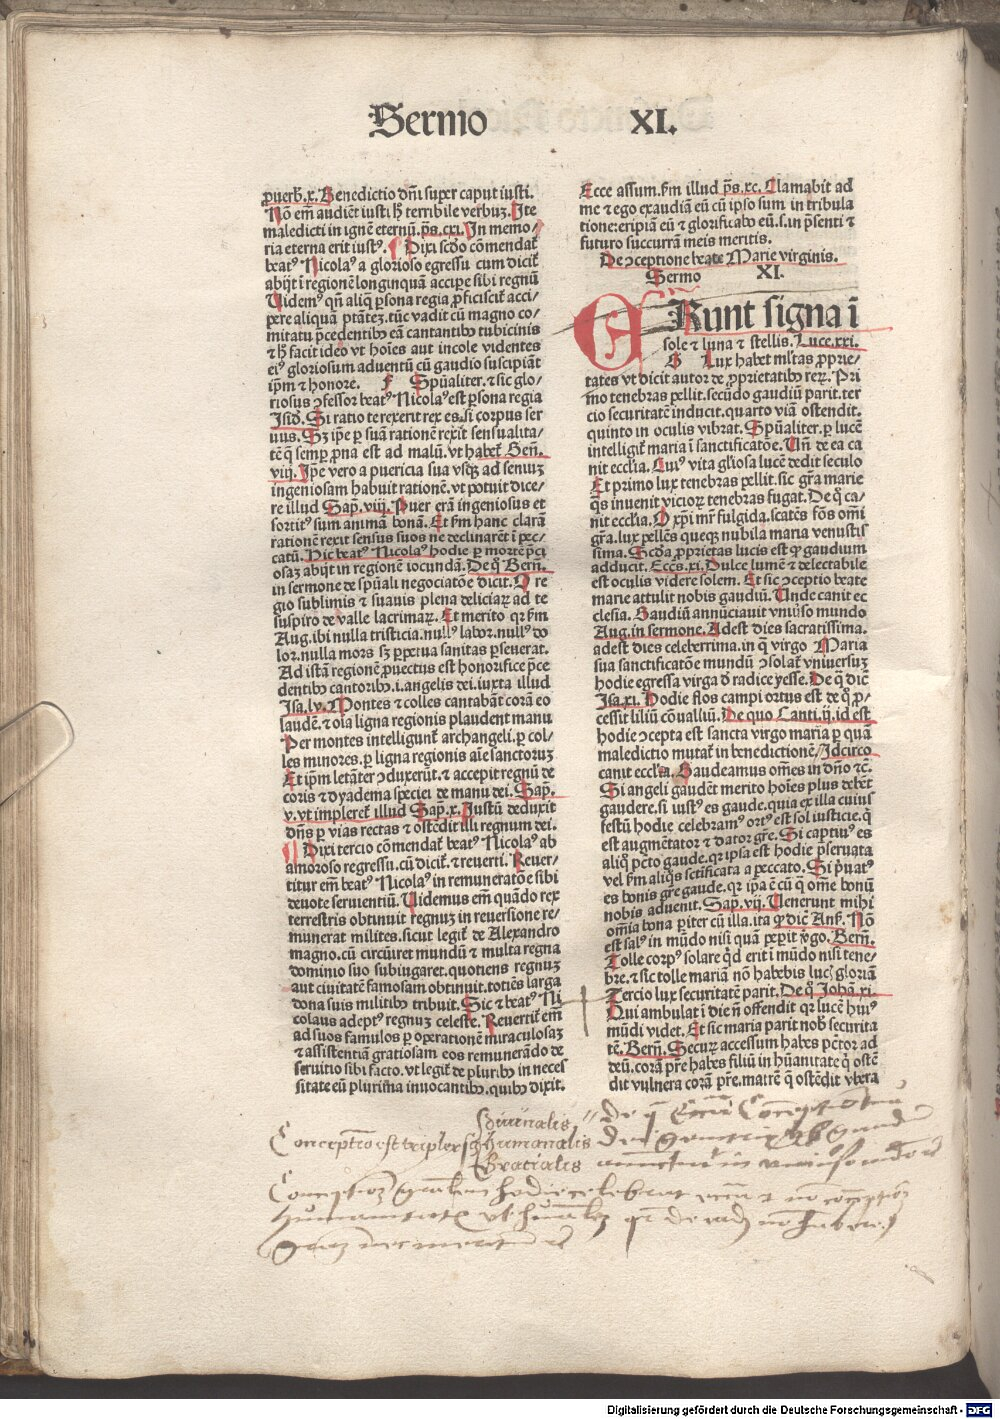 Sermo XI.
ꝓuerb̄.x. Benedictio dn̄i super caput iusti.
Nō em̄ audiēt iusti h̄ terribile verbuꝫ. Ite
maledicti in ignē eternū. ps̄.cxi. In memo/
ria eterna erit iustꝰ. Dixi scd̄o cōmendat̄
beatꝰ Nicolaꝰ a glorioso egressu cum dicit̄
abijt ī regionē longinquā accipe sibi regnū
Uidemꝰ qn̄ aliq̄ ꝑsona regia ꝓficiscit̄ acci/
pere aliquam ptātez. tūc vadit cū magno co/
mitatu p̄cedentibꝰ eā cantantibꝰ tubicinis
⁊ h̄ facit ideo vt hoīes aut incole videntes
eiꝰ gloriosum aduentū cū gaudio suscipiāt
ip̄m ⁊ honore. F Sp̄ualiter. ⁊ sic glo/
riosus ꝯfessor beatꝰ Nicolaꝰ est ꝑsona regia
Isid̄. Si ratio te rexerit rex es. si corpus ser
uus. Sꝫ ip̄e ꝑ suā rationē rexit sensualita/
tē q̄ semꝑ ꝓna est ad malū. vt habet̄ Gen̄.
viij. Ip̄e vero a puericia sua vsqꝫ ad seniuꝫ
ingeniosam habuit rationē. vt potuit dice/
re illud Sap̄. viij. Puer erā ingeniosus et
sortitꝰ sum animā bonā. Et ẜm hanc clarā
rationē rexit sensus suos ne declinarēt ī pec/
catū. Hic beatꝰ Nicolaꝰ hodie ꝑ mortē p̄ci
osaꝫ abijt in regionē iocundā. De q̄ Bern̄.
in sermone de sp̄uali negociatōe dicit. O re
gio sublimis ⁊ suauis plena deliciaꝝ ad te
suspiro de valle lacrimaꝝ. Et merito qꝛ ẜm
Aug. ibi nulla tristicia. nullꝰ labor. nullꝰ do
lor. nulla mors sꝫ ꝑpetua sanitas ꝑseuerat.
Ad istā regionē ꝓuectus est honorifice p̄ce
dentibꝰ cantoribꝰ .i. angelis dei. iuxta illud
Isa. lv. Montes ⁊ colles cantabāt corā eo
laudē. ⁊ oīa ligna regionis plaudent manu
Per montes intelligunt̄ archangeli. ꝑ col/
les minores. ꝑ ligna regionis aīe sanctoruꝫ
Et ip̄m letāter ꝯduxerūt. ⁊ accepit regnū de
coris ⁊ dyadema speciei de manu dei. Sap̄.
v. vt impleret̄ illud Sap̄. x. Iustū deduxit
dn̄s ꝑ vias rectas ⁊ ostēdit illi regnum dei.
Dixi tercio cōmendat̄ beatꝰ Nicolaꝰ ab
amoroso regressu. cū dicit̄. ⁊ reuerti. Reuer/
titur em̄ beatꝰ Nicolaꝰ in remuneratōe sibi
deuote seruientiū. Uidemus em̄ quādo rex
terrestris obtinuit regnuꝫ in reuersione re/
munerat milites. sicut legit̄ de Alexandro
magno. cū circūiret mundū ⁊ multa regna
dominio suo subiugaret. quotiens regnuꝫ
aut ciuitatē famosam obtinuit. totiēs larga
dona suis militibꝰ tribuit. Sic ⁊ beatꝰ Ni
colaus adeptꝰ regnuꝫ celeste. Reuertit̄ em̄
ad suos famulos ꝑ operationē miraculosaꝫ
⁊ assistentiā gratiosam eos remunerādo de
seruitio sibi facto. vt legit̄ de pluribꝰ in neces
sitate eū plurima inuocantibꝰ. quibꝰ dixit.
Ecce assum. ẜm illud ps̄. xc. Clamabit ad
me ⁊ ego exaudiā eū cū ipso sum in tribula
tione: eripiā eū ⁊ glorificabo eū. s. in p̄senti ⁊
futuro succurrā meis meritis.
De ꝯceptione beate Marie virginis.
Sermo XI.
ERunt signa ī
sole ⁊ luna ⁊ stellis. Luce. xxi.
G Lux habet ml̄tas ꝓprie/
tates vt dicit autor de ꝓprietatibꝰ reꝝ. Pri
mo tenebras pellit. secūdo gaudiū parit. ter
cio securitatē inducit. quarto viā ostendit.
quinto in oculis vibrat. Sp̄ualiter. ꝑ lucē
intelligit̄ maria ī sanctificatōe. Un̄ de ea ca
nit eccl̄ia. Cuiꝰ vita gl̄iosa lucē dedit seculo
Et primo lux tenebras pellit. sic gr̄a marie
qͣs inuenit vicioꝝ tenebras fugat. De q̄ ca/
nit eccl̄ia. O xp̄i mr̄ fulgida. scatēs fōs om̄i
gr̄a. lux pellēs queqꝫ nubila maria venustis
sima. Scd̄a ꝓprietas lucis est qꝫ gaudium
adducit. Eccs̄. xi. Dulce lumē ⁊ delectabile
est oculis videre solem. Et sic ꝯceptio beate
marie attulit nobis gaudiū. Unde canit ec
clesia. Gaudiū annūciauit vniūso mundo
Aug. in sermone. Adest dies sacratissima.
adest dies celeberrima. in q̄ virgo Maria
sua sanctificatōe mundū ꝯsolat̄ vniuersuꝫ
hodie egressa virga d̄ radice yesse. De q̄ dic̄
Isa. xi. Hodie flos campi ortus est de q̄ ꝓ/
cessit liliū cōualliū. De quo Canti. ij. id est
hodie ꝯcepta est sancta virgo maria ꝑ quā
maledictio mutat̄ in benedictionē. Idcirco
canit eccl̄ia. Gaudeamus om̄es in dn̄o ⁊c̄.
Si angeli gaudēt merito hoīes plus debēt
gaudere. si iustꝰ es gaude. quia ex illa cuius
festū hodie celebramꝰ ortꝰ est sol iusticie. q̄
est augmētator ⁊ dator gr̄e. Si captiuꝰ es
aliqͦ pctō gaude. qꝛ ipsa est hodie p̄seruata
vel ẜm aliqͦs sctificata a peccato. Si p̄uatꝰ
es bonis gr̄e gaude. qꝛ ip̄a ē cū q̄ om̄e bonū
nobis aduenit. Sap̄. vij. Uenerunt mihi
om̄ia bona ꝑiter cū illa. ita qꝫ dic̄ Ans̄. Nō
est salꝰ in mūdo nisi quā peꝑit v̄go. Bern̄.
Tolle corpꝰ solare qͥd erit ī mūdo nisi tene/
bre. ⁊ sic tolle mariā nō habebis lucꝭ gloriā
Tercio lux securitatē parit. De q̄ Johā. xi.
Qui ambulat ī die n̄ offendit qꝛ lucē huiꝰ
mūdi videt. Et sic maria parit nob̄ securita
tē. Bern̄. Securꝝ accessum habes pctōr ad
deū. corā pr̄e habes filiū in hūanitate qͥ ostē
dit vulnera corā pr̄e. matrē q̄ ostēdit vbera
Diuinalis
Conceptio est triplex sc̄ Humanalis
Gracialis
Digitalisierung gefördert durch die Deutsche Forschungsgemeinschaft - DFG